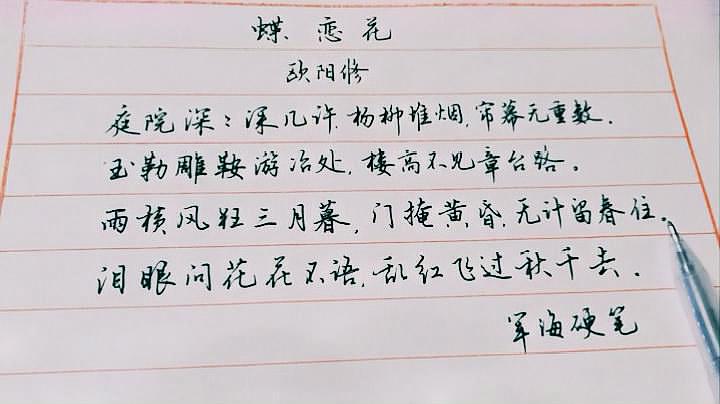 蝶恋花
欧阳修
庭院深：深几许，杨柳堆烟，帘幕无重数．
玉勒雕鞍游冶处，楼高不见章台路。
雨横风狂三月暮，门掩黄昏，无计留春住。
泪眼问花花不语，乱红飞过秋千去．
军海硬笔